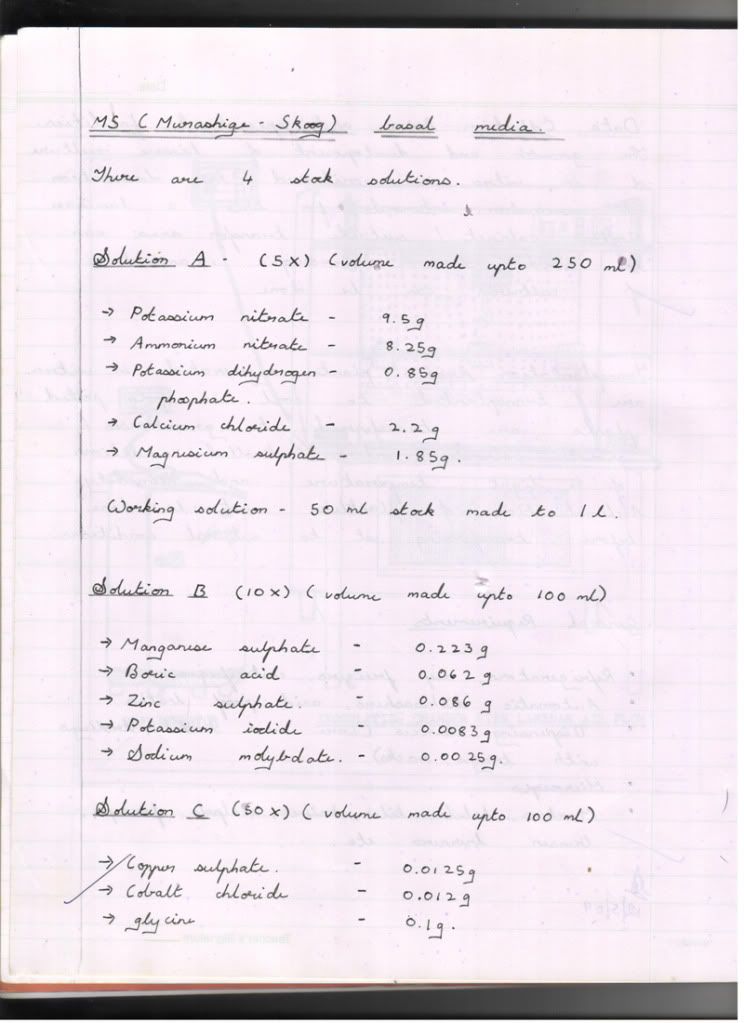 MS (Murashige - Skoog) basal media.
There are 4 stock solutions.
Solution A - (5X) (volume made upto 250 ml)
→ Potassium nitrate - 9.5g
→ Ammonium nitrate - 8.25g
→ Potassium dihydrogen - 0.85g
phosphate.
→ Calcium chloride - 2.2g
→ Magnesium sulphate - 1.85g.
Working solution - 50 ml stock made to 1 l.
Solution B (10X) (volume made upto 100 ml)
→ Manganese sulphate - 0.223g
→ Boric acid - 0.062g
→ Zinc sulphate. - 0.086g
→ Potassium iodide - 0.0083g
→ Sodium molybdate. - 0.0025g.
Solution C (50X) (volume made upto 100 ml)
→ Copper sulphate. - 0.0125g
→ Cobalt chloride - 0.012g
→ glycine - 0.1g.